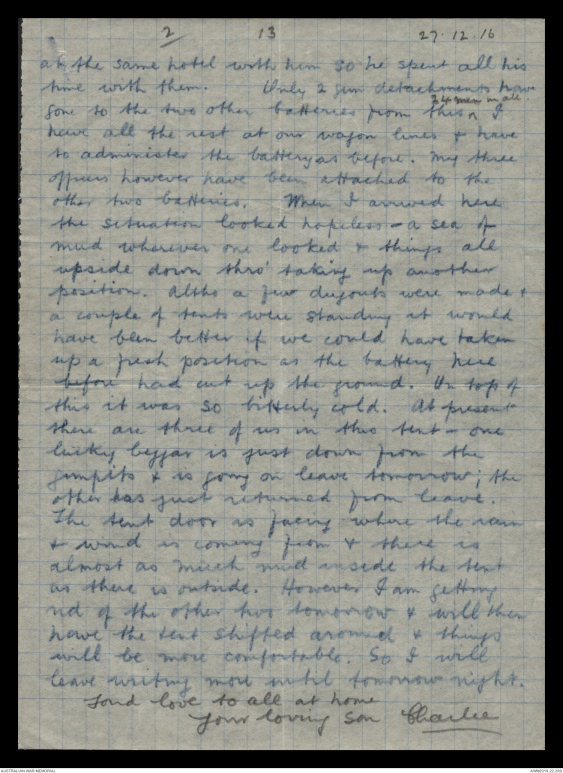 2 13 27.12.16
at the same hotel with him so he spent all his
time with them. Only 2 gun detachments have
24 men in all
gone to the two other batteries from this ^ I
have all the rest at our wagon lines & have
to administer the battery as before. My three
officers however have been attached to the
other two batteries. When I arrived here
the situation looked hopeless - a sea of
mud wherever one looked & things all
upside down thro' taking up another
position. Altho a few dugouts were made &
a couple of tents were standing it would
have been better if we could have taken
up a fresh position as the battery here
before had cut up the ground. On top of
this it was so bitterly cold. At present
there are three of us in this tent - one
lucky beggar is just down from the
gunpits & is going on leave tomorrow; the
other has just returned from leave.
The tent door is facing where the rain
& wind is coming from & there is
almost as much mud inside the tent
as there is outside. However I am getting
rid of the other two tomorrow & will then
have the tent shifted around & things
will be more comfortable. So I will
leave writing more until tomorrow night.
Fond love to all at home
Your loving son Charlie
AUSTRALIAN WAR MEMORIAL